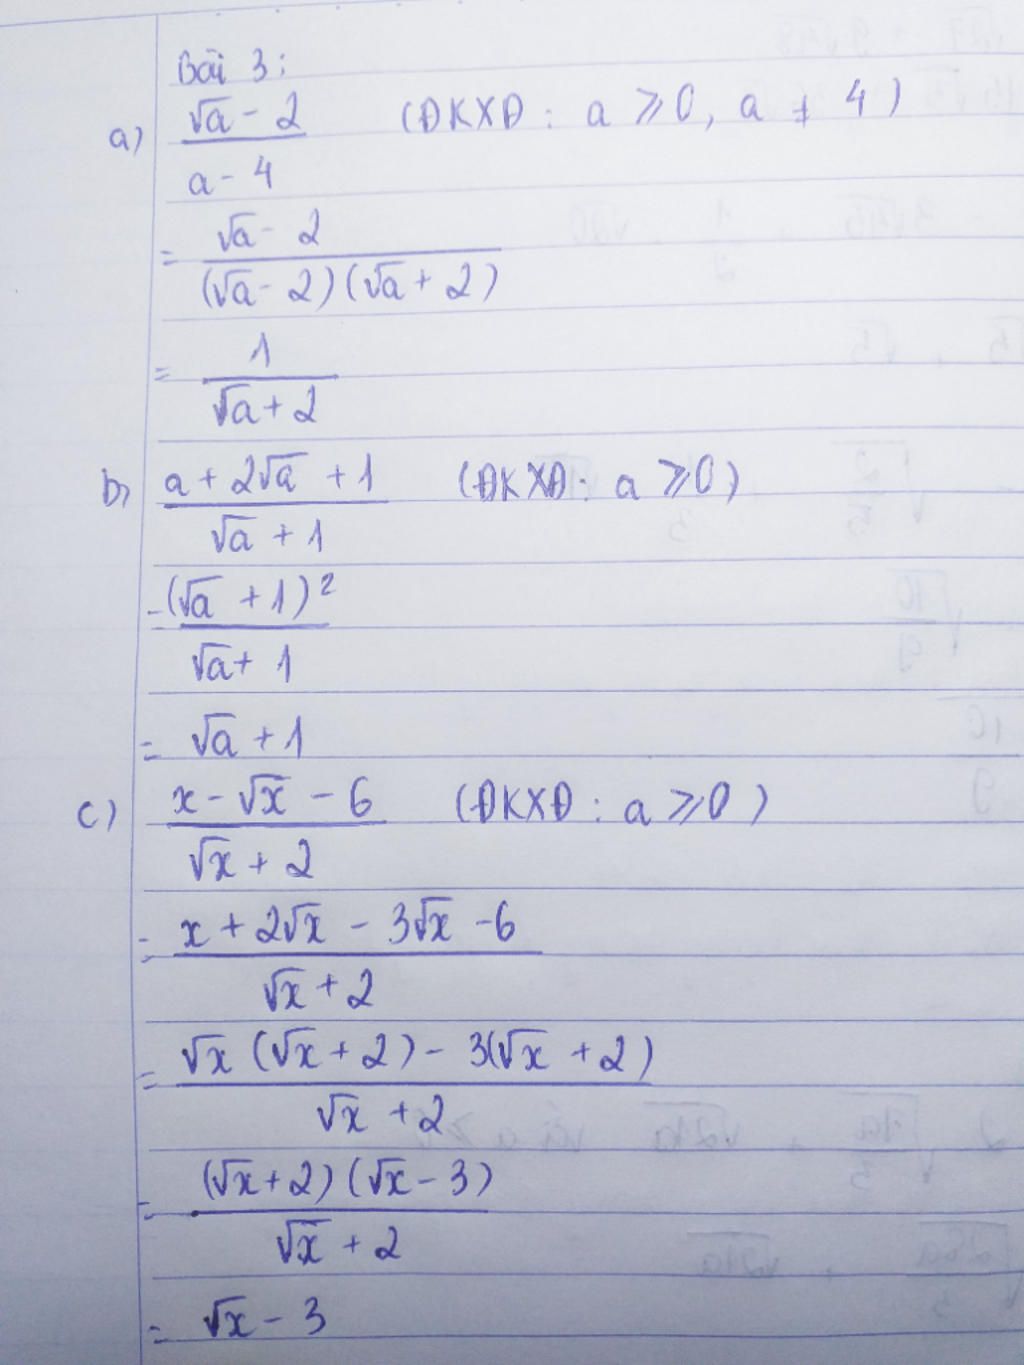 Bài 3:
a) (√a - 2)/(a - 4) (ĐKXĐ: a ≥ 0, a ≠ 4)
= (√a - 2)/((√a - 2)(√a + 2))
= 1/(√a + 2)
b) (a + 2√a + 1)/(√a + 1) (ĐKXĐ: a ≥ 0)
= (√a + 1)²/(√a + 1)
= √a + 1
c) (x - √x - 6)/(√x + 2) (ĐKXĐ: a ≥ 0)
= (x + 2√x - 3√x - 6)/(√x + 2)
= (√x (√x + 2) - 3(√x + 2))/(√x + 2)
= ((√x + 2)(√x - 3))/(√x + 2)
= √x - 3